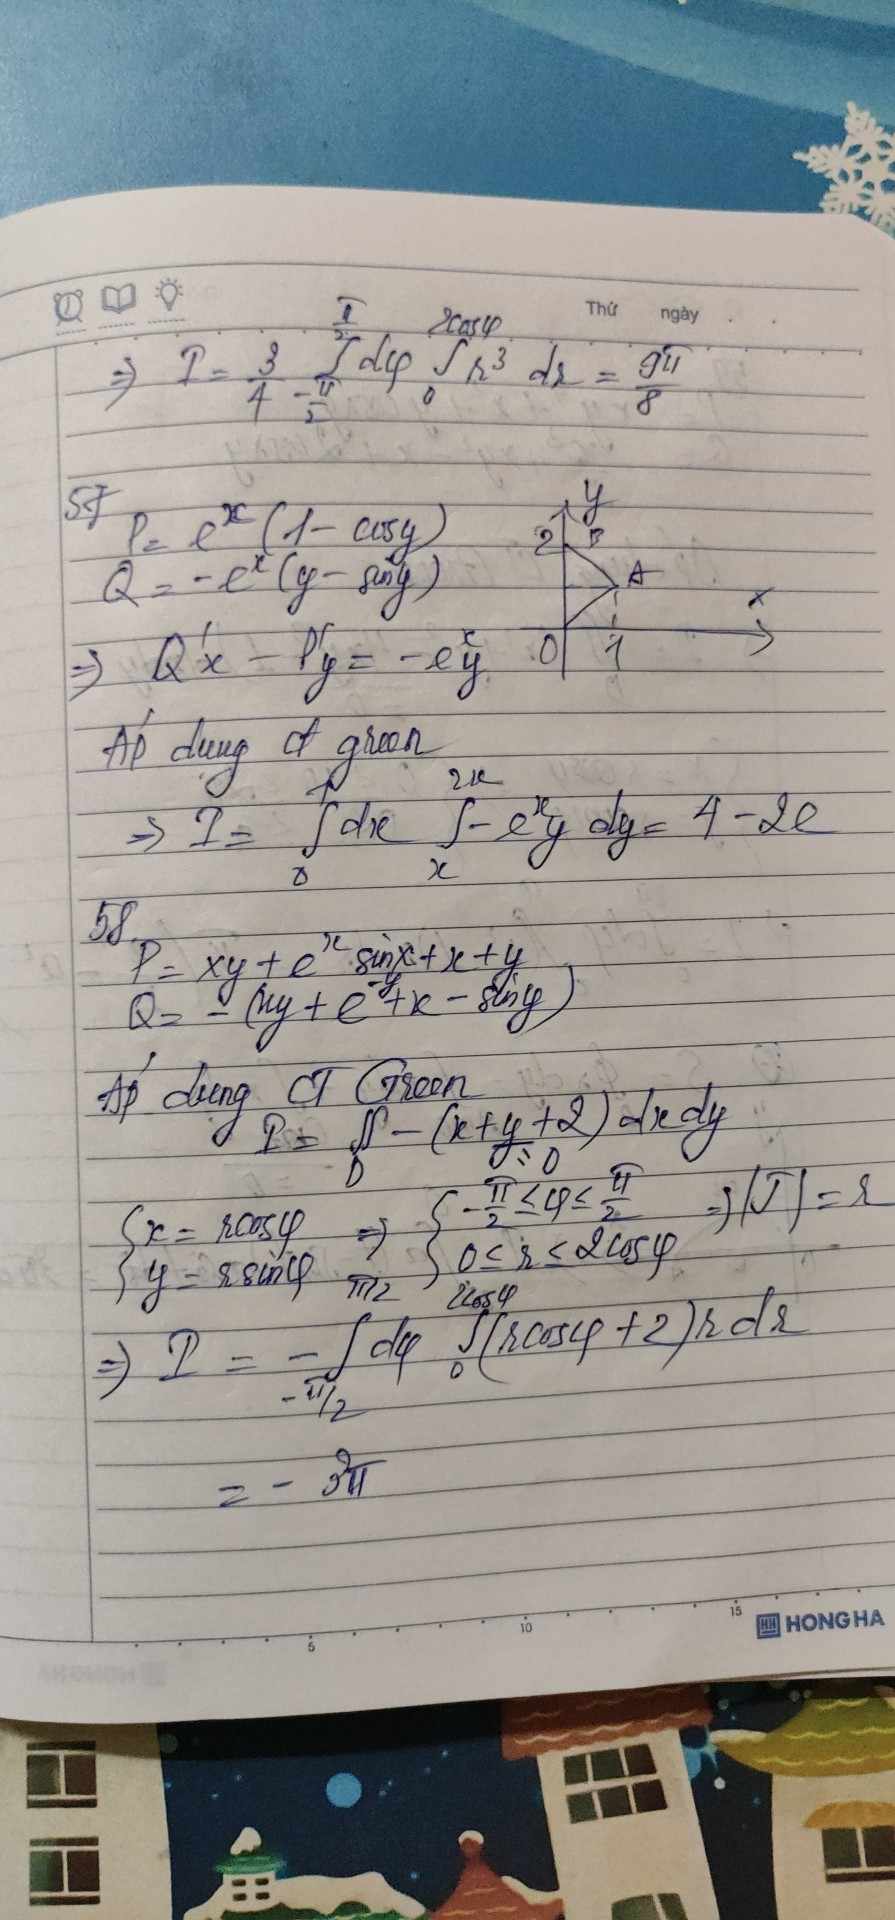 Thứ ngày . .
⇒ I = 3/4 ∫_{-π/2}^{π/2} dφ ∫_0^{2cosφ} r³ dr = 9π/8
57
P = e^x (1 - cosy)
Q = -e^x (y - siny)
⇒ Q'x - P'y = -e^x y
y
2 B
A
x
0 1
Áp dụng ct green
⇒ I = ∫_0^1 dx ∫_x^{2x} -e^x y dy = 4 - 2e
58.
P = xy + e^x sinx + x + y
Q = -(xy + e^{-y} + x - siny)
Áp dụng CT Green
I = ∬_D -(x + y + 2) dxdy
y: 0
{ x = rcosφ
{ y = rsinφ
⇒ { -π/2 ≤ φ ≤ π/2
{ 0 ≤ r ≤ 2cosφ
⇒ |J| = r
⇒ I = - ∫_{-π/2}^{π/2} dφ ∫_0^{2cosφ} (rcosφ + 2) r dr
= - 3π
5 10 15
HH HONG HA